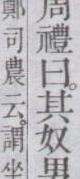 周禮曰其奴男
鄭司農云謂坐